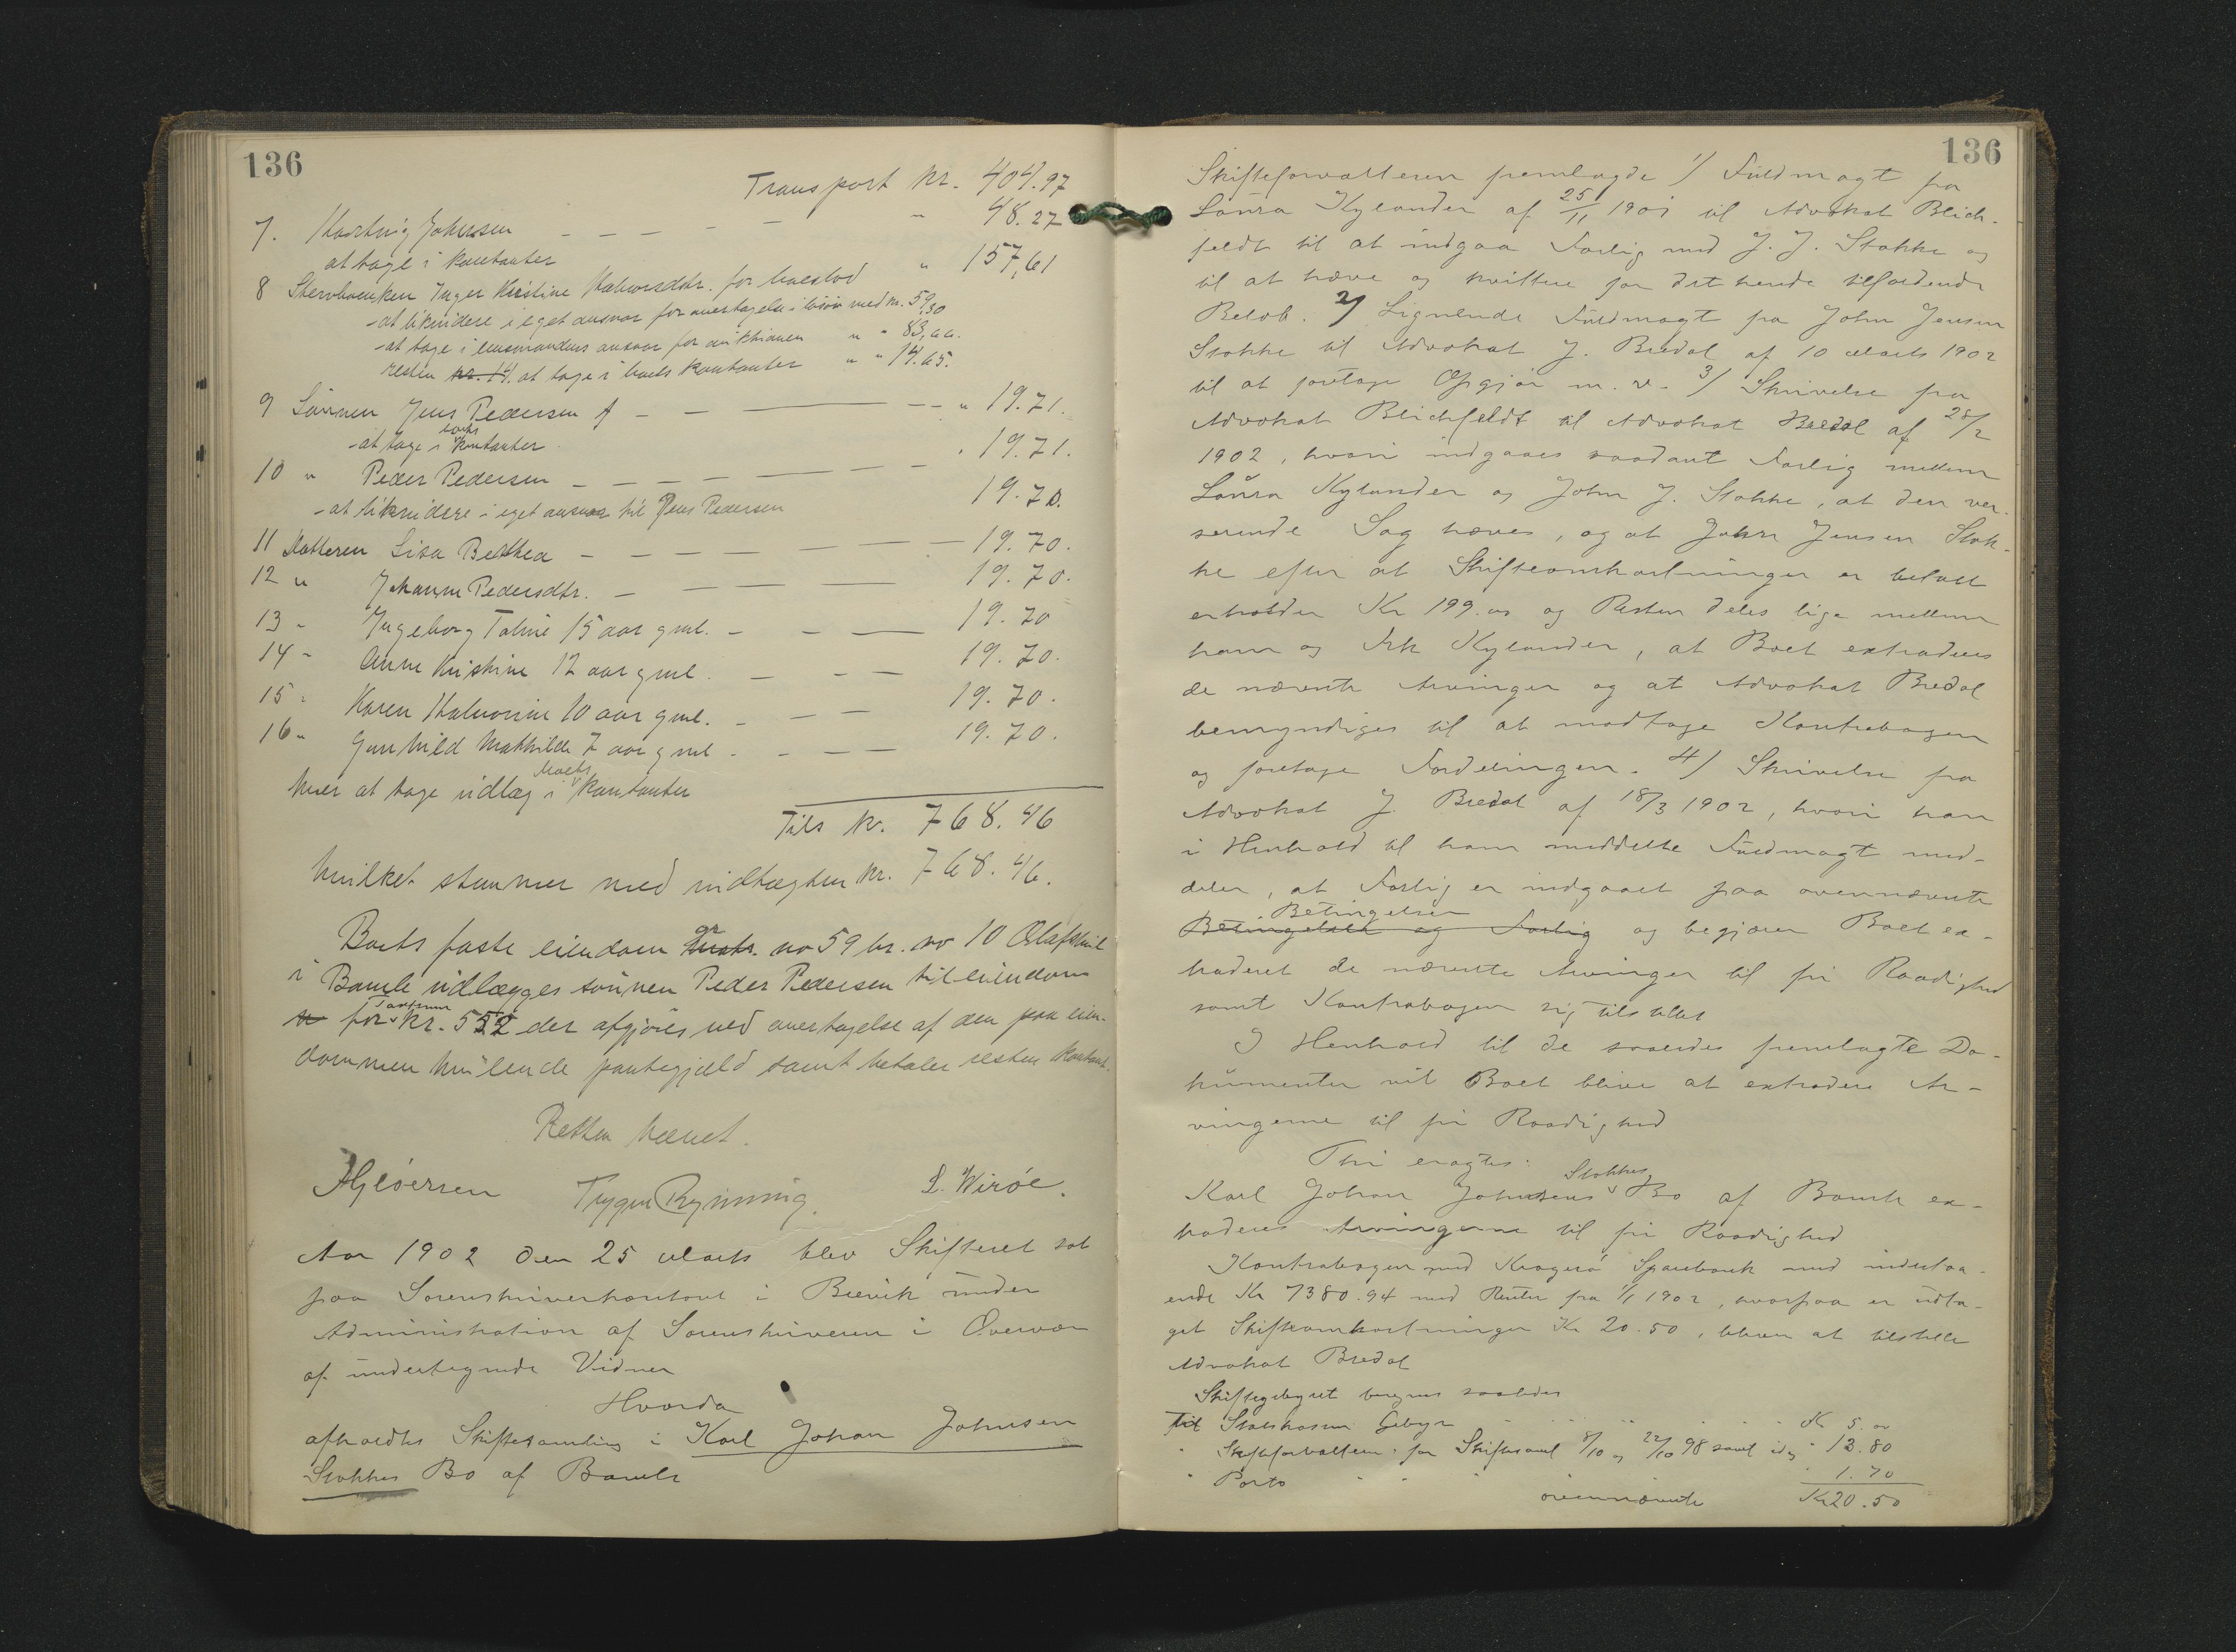 136
Transport kr. 404.97
7. Hartvig Johnsen — — — — — " 48.27
at tage i kontanter
8 Stervboenken Inger Kristine Halvorsdtr. for boeslod " 157,61
- at likvidere i eget ansvar for overtagelse i løsøre med kr. 59,30
- at tage i lensmandens ansvar for auktionen " " 83,66.
resten kr. 14. at tage i boets kontanter " " 14.65.
9 Sønnen Jens Pedersen — — — — " 19.71.
- at tage i boets kontanter
10 " Peder Pedersen — — — — — — " 19.71.
- at likvidere i eget ansvar til Jens Pedersen 19.70.
11 Datteren Lisa Berthea — — — — — — 19.70.
12 " Johanne Pedersdtr. — — — 19.70.
13 " Ingeborg Tomine 15 aar gml. — — — 19.70
14 " Anne Kristine 12 aar gml. — — — 19.70.
15 " Karen Halvorine 10 aar gml. — — — 19.70.
16 " Gunhild Mathilde 7 aar gml — — — 19.70.
hver at tage udlæg i boets kontanter
Tils kr. 768.46
hvilket stemmer med indtægten kr. 768.46.
Boets faste eiendom gr no 59 br. no 10 Olafs
i Bamle udlægges sønnen Peder Pedersen til eiendom
for Taxtsum kr. 552 der afgjøres ved overtagelse af den paa eien-
dommen hvilende pantegjæld samt betaler resten kontant.
Retten hævet.
Trygve Rynning. L. Wirøe.
Aar 1902 den 25 Marts blev Skifteret sat
paa Sorenskriverkontoret i Brevik under
Administration af Sorenskriveren i Overvær
af undertegnede Vidner
Hvorda
afholdtes Skiftesamling i Karl Johan Johnsen
Stokkes Bo af Bamle
136
Skifteforvalteren fremlagde 1/ Fuldmagt fra
Laura Kylander af 25/11 1901 til Advokat Blich-
feldt til at indgaa Forlig med J. J. Stokke og
til at hæve og kvittere for det hende tilfaldende
Beløb. 2/ Lignende Fuldmagt fra John Jensen
Stokke til Advokat J. Bredal af 10 Marts 1902
til at foretage Opgjør m. v. 3/ Skrivelse fra
Advokat Blichfeldt til Advokat Bredal af 28/2
1902, hvori indgaaes saadant Forlig mellem
Laura Kylander og John J. Stokke, at den ver-
serende Sag hæves, og at John Jensen Stok-
ke efter at Skifteomkostninger er betalt
erholder Kr 199.00 og Resten deles lige mellem
ham og Frk Kylander, at Boet extraderes
de nævnte Arvinger og at Advokat Bredal
bemyndiges til at modtage Kontrabogen
og foretage Fordelingen. 4/ Skrivelse fra
Advokat J. Bredal af 18/3 1902, hvori han
i Henhold til ham meddelte Fuldmagt med-
deler, at Forlig er indgaaet paa ovennævnte
Betingelser
Betingelser og Forlig og begjærer Boet ex-
traderet de nævnte Arvinger til fri Raadighed
samt Kontrabogen sig tilstillet
I Henhold til de saaledes fremlagte Do-
kumenter vil Boet blive at extradere Ar-
vingerne til fri Raadighed
Thi eragtes:
Karl Johan Johnsens Stokkes Bo af Bamle ex-
traderes Arvingerne til fri Raadighed
Kontrabogen med Kragerø Sparebank med indestaa-
ende Kr 7380.94 med Renter fra 1/1 1902, hvorpaa er udta-
get Skifteomkostninger Kr 20.50, bliver at tilstille
Advokat Bredal
Skiftegebyret beregnes saaledes
Til Statskassen Gebyr Kr 5.00
" Skifteforvalteren: for Skiftesaml 8/10 og 22/10 98 samt idag " 13.80
" Porto " 1.70
ovennævnte Kr 20.50